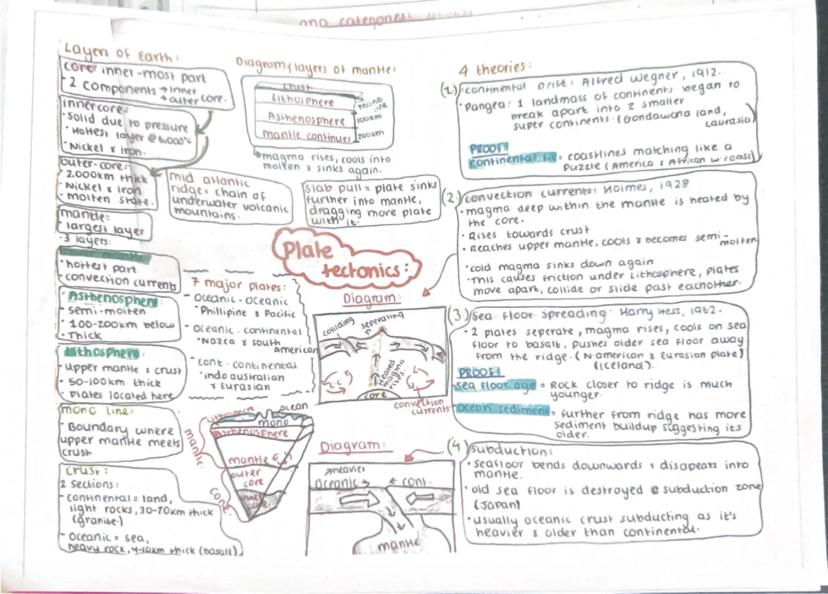 and categories
Layers of Earth:
core inner-most part
- 2 components → inner
→ outer core.
innercore:
- Solid due to pressure
- Hottest layer @ 6,000°c
- Nickel & iron.
outer-core:
- 2,000km thick
- Nickel & iron
- molten state.
mantle:
- largest layer
- 3 layers:
- hottest part
- convection currents
Asthenosphere:
- semi-molten
- 100-200km below
- Thick
Lithosphere:
- upper mantle & crust
- 50-100km thick
- plates located here
mono line:
- Boundary where
upper mantle meets
crust
crust:
2 sections:
- continental = land,
light rocks, 30-70km thick
(granite)
- oceanic = sea,
heavy rock, 4-10km thick (basalt)
Diagram of layers of mantle:
crust
Lithosphere
Asthenosphere
mantle continues
mono
line
100km
200km
magma rises, cools into
molten & sinks again.
mid atlantic
ridge = chain of
underwater volcanic
mountains.
slab pull = plate sinks
further into mantle,
dragging more plate
with it.
Plate
tectonics:
7 major plates:
- oceanic-oceanic
- Phillipine & Pacific
- oceanic-continental
- Nazca & south
american
- cont-continental
- indo australian
& eurasian
Diagram:
colliding
seperating
heated
magma
rises
core
convection
currents
Lithosphere
ocean
mono
Asthenosphere
mantle
outer
core
inner
core
mantle
core
Diagram:
heavier
oceanic →
← cont.
mantle
4 theories:
(1) continental Drift: Alfred Wegner, 1912.
- Pangea: 1 landmass of continents began to
break apart into 2 smaller
super continents. (Gondwana land,
Laurasia)
PROOF:
continental fit = coastlines matching like a
puzzle (America & African w coast)
(2) convection currents: Holmes, 1928
- magma deep within the mantle is heated by
the core.
- Rises towards crust
- Reaches upper mantle, cools & becomes semi-
molten
- cold magma sinks down again
- This causes friction under Lithosphere, plates
move apart, collide or slide past eachother.
(3) Sea Floor Spreading: Harry Hess, 1962.
- 2 plates seperate, magma rises, cools on sea
floor to basalt, pushes older sea floor away
from the ridge. (N american & Eurasian plate)
(Iceland).
PROOF:
sea floor age = Rock closer to ridge is much
younger.
ocean sediment = further from ridge has more
sediment buildup suggesting its
older.
(4) subduction:
- seafloor bends downwards & disapears into
mantle.
- old sea floor is destroyed @ subduction zone
(Japan)
- usually oceanic crust subducting as it's
heavier & older than continental.